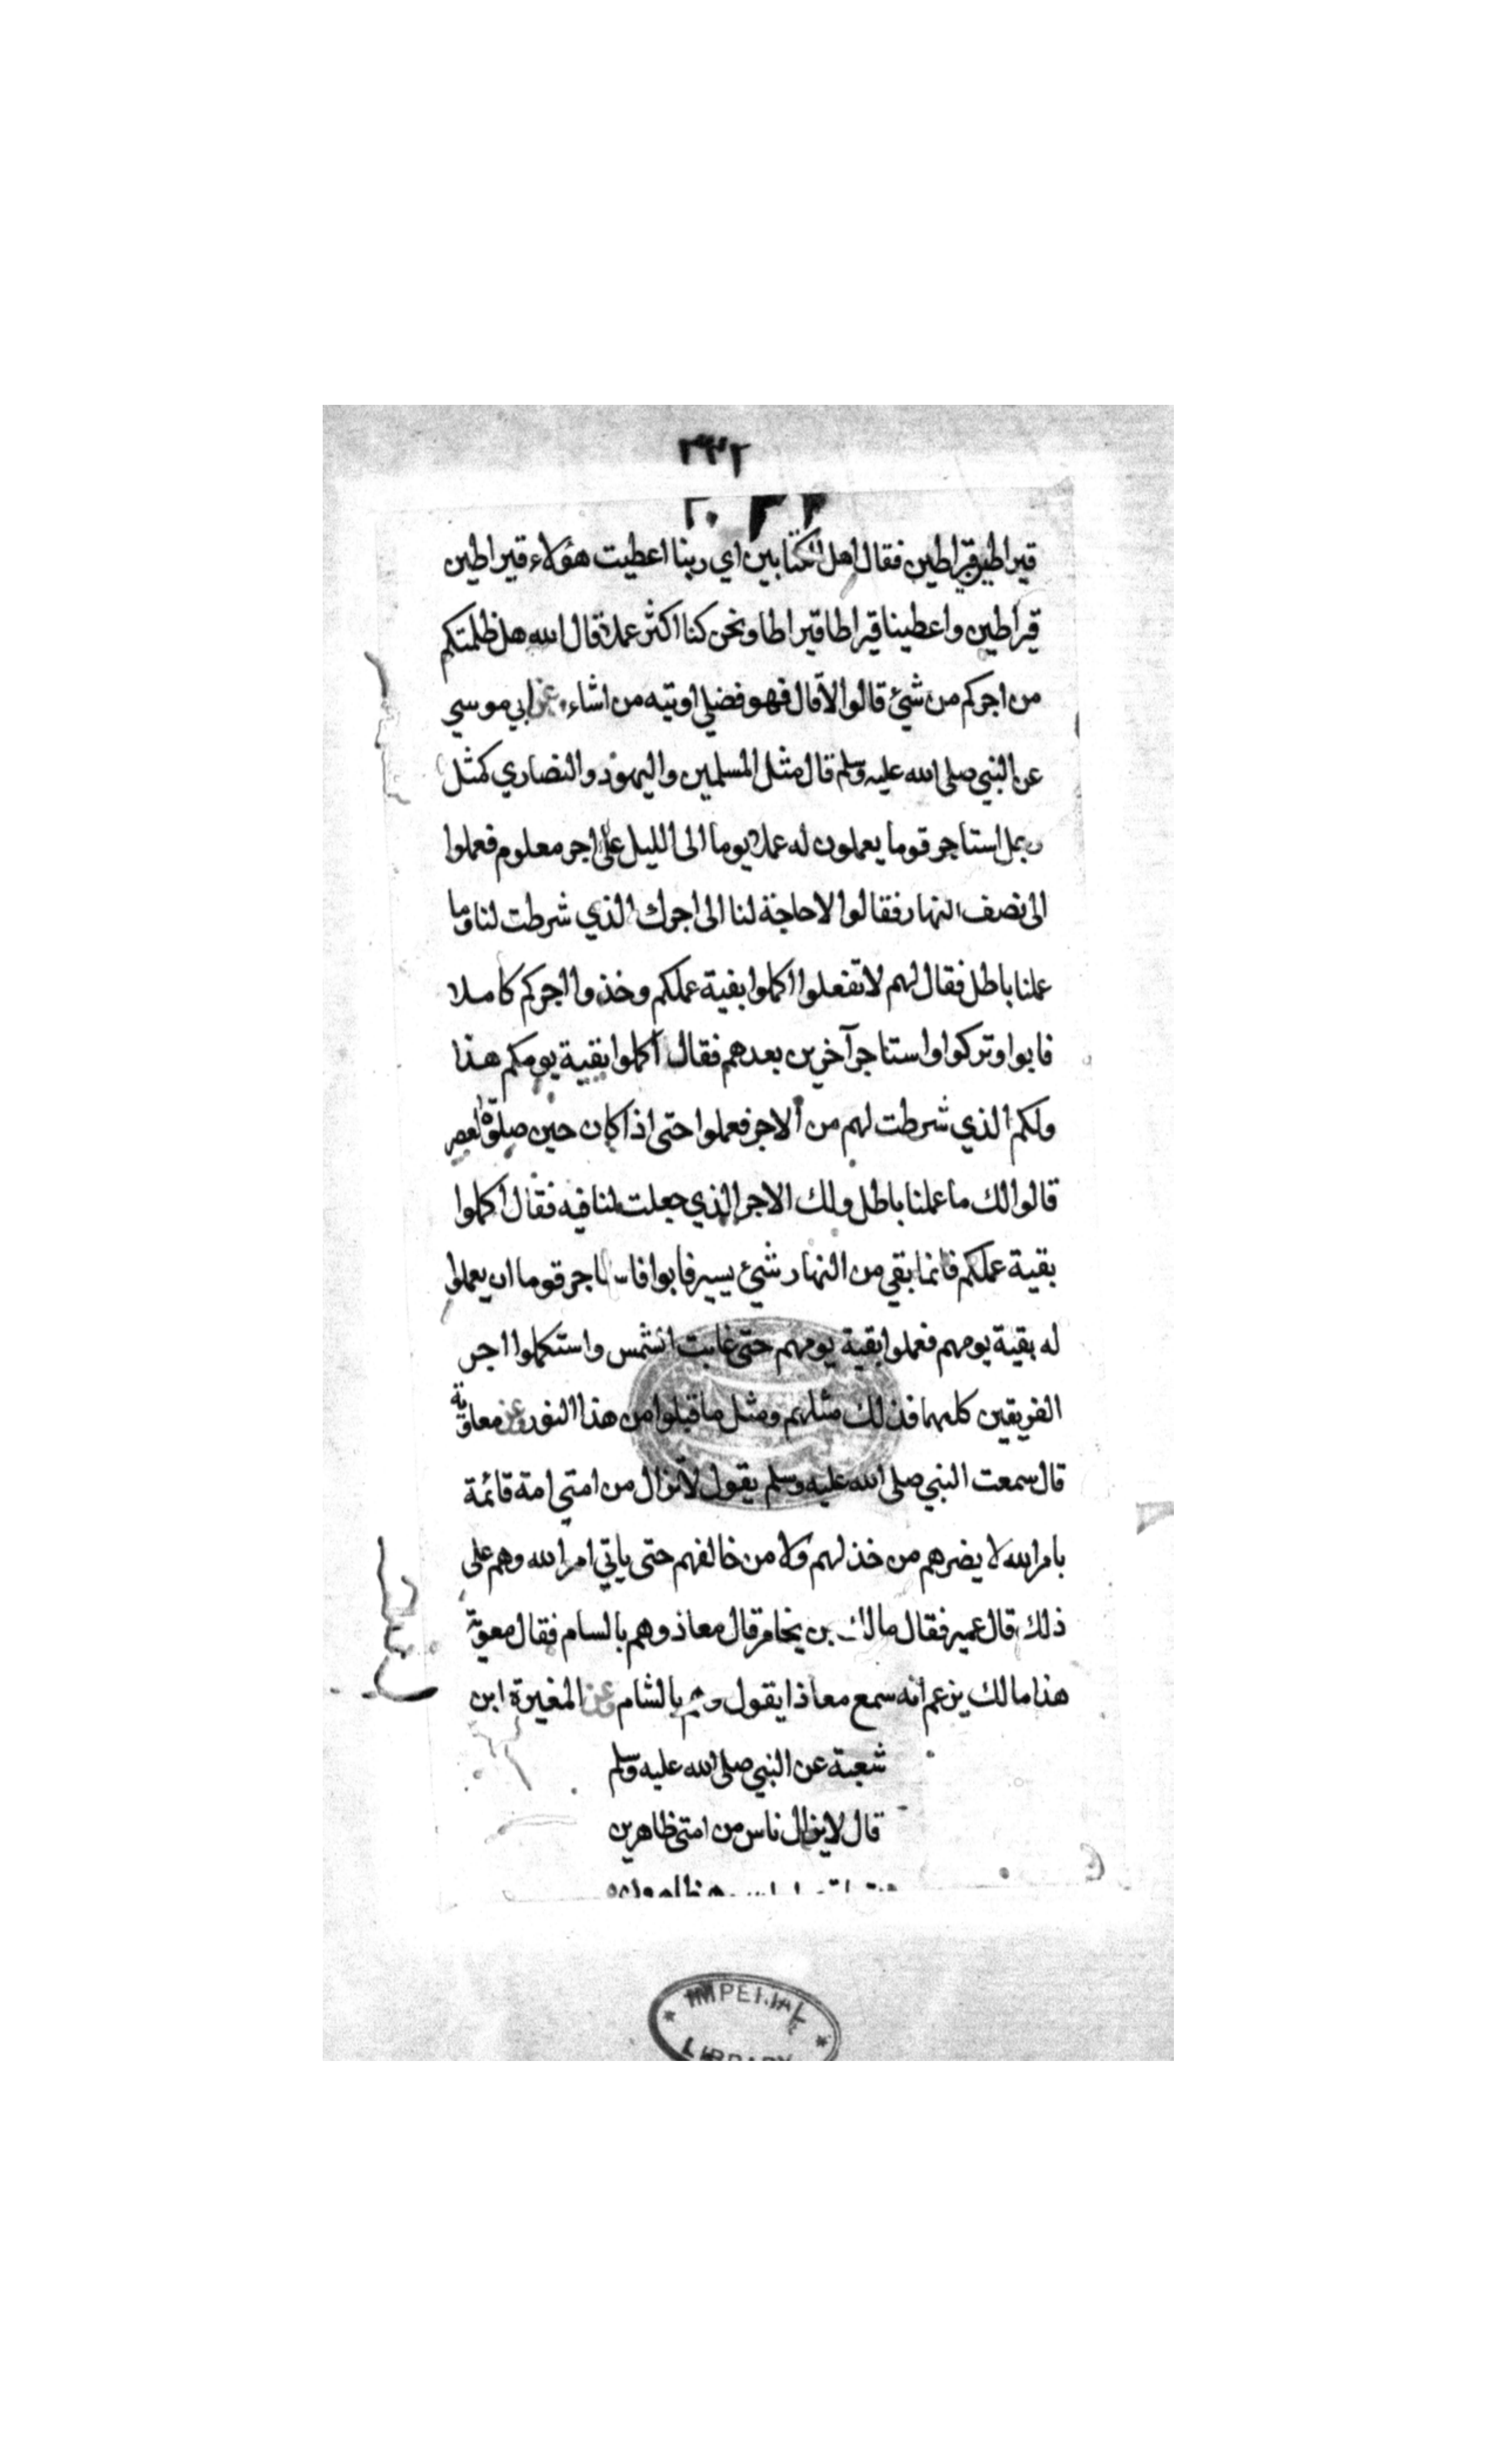 ٣٣٢
قيراطين قيراطين فقال اهل الكتابين اي ربنا اعطيت هؤلاء قيراطين
قيراطين واعطينا قيراطا قيراطا ونحن كنا اكثر عملا قال الله هل ظلمتكم
من اجركم من شئ قالوا لا قال فهو فضلي اوتيه من اشاء عن ابي موسي
عن النبي صلى الله عليه وسلم قال مثل المسلمين واليهود والنصاري كمثل
رجل استاجر قوما يعملون له عملا يوما الى الليل على اجر معلوم فعملوا
الى نصف النهار فقالوا لا حاجة لنا الى اجرك الذي شرطت لنا وما
عملنا باطل فقال لهم لا تفعلوا اكملوا بقية عملكم وخذوا اجركم كاملا
فابوا وتركوا واستاجر آخرين بعدهم فقال اكملوا بقية يومكم هذا
ولكم الذي شرطت لهم من الاجر فعملوا حتى اذا كان حين صلوة العصر
قالوا لك ما عملنا باطل ولك الاجر الذي جعلت لنا فيه فقال اكملوا
بقية عملكم فانما بقي من النهار شئ يسير فابوا فاستاجر قوما ان يعملوا
له بقية يومهم فعملوا بقية يومهم حتى غابت الشمس واستكملوا اجر
الفريقين كليهما فذلك مثلهم ومثل ما قبلوا من هذا النور وعن معاوية
قال سمعت النبي صلى الله عليه وسلم يقول لا تزال من امتي امة قائمة
بامر الله لا يضرهم من خذلهم ولا من خالفهم حتى ياتي امر الله وهم على
ذلك قال عمير فقال مالك بن يخامر قال معاذ وهم بالسام فقال معوية
هذا مالك يزعم انه سمع معاذا يقول وهم بالشام وعن المغيرة ابن
شعبة عن النبي صلى الله عليه وسلم
قال لا يزال ناس من امتى ظاهرين
IMPERIAL
LIBRARY